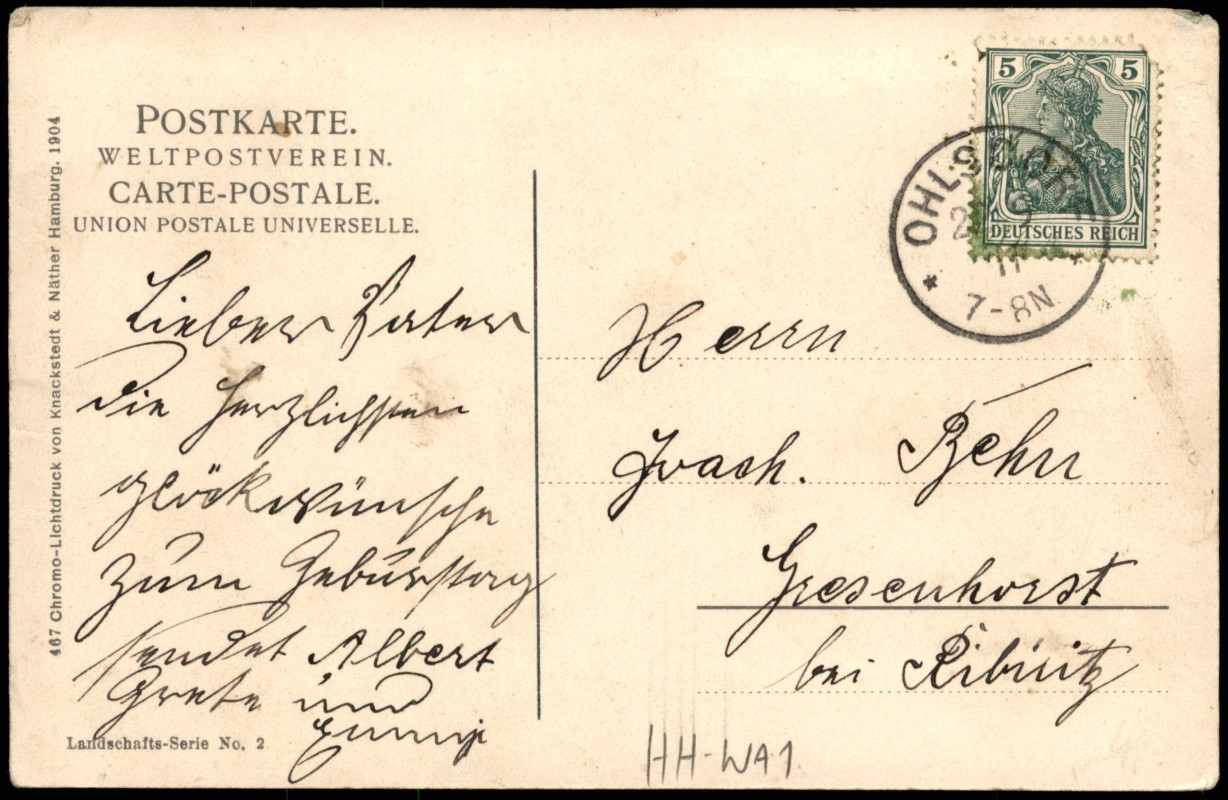 POSTKARTE.
WELTPOSTVEREIN.
CARTE-POSTALE.
UNION POSTALE UNIVERSELLE.
467 Chromo-Lichtdruck von Knackstedt & Näther Hamburg. 1904
5 5
DEUTSCHES REICH
OHLSDORF
11
7-8N
Lieber Vater
die herzlichsten
glückwünsche
zum Geburtstag
sendet Albert
Grete und
Landschafts-Serie No. 2
Herrn
Joach. Behn
Gresenhorst
bei Ribnitz
HH-WA1